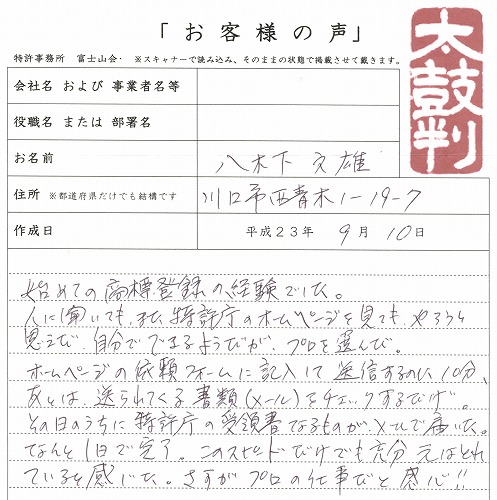 「お客様の声」
太鼓判
特許事務所 富士山会・ ※スキャナーで読み込み、そのままの状態で掲載させて戴きます。
会社名 および 事業者名等
役職名 または 部署名
お名前 八木下 文雄
住所 ※都道府県だけでも結構です 川口市西青木1-19-7
作成日 平成23年 9月 10日
始めての商標登録の経験でした。
人に聞いても、また特許庁のホームページを見ても、やろうと
思えば、自分でできるようだが、プロを選んだ。
ホームページの依頼フォームに記入して送信するのに10分、
あとは、送られてくる書類(メール)をチェックするだけ。
その日のうちに特許庁の受領書なるものが、メールで届いた。
なんと1日で完了。このスピードだけでも充分元はとれ
ていると感じた。さすがプロの仕事だと感心!!